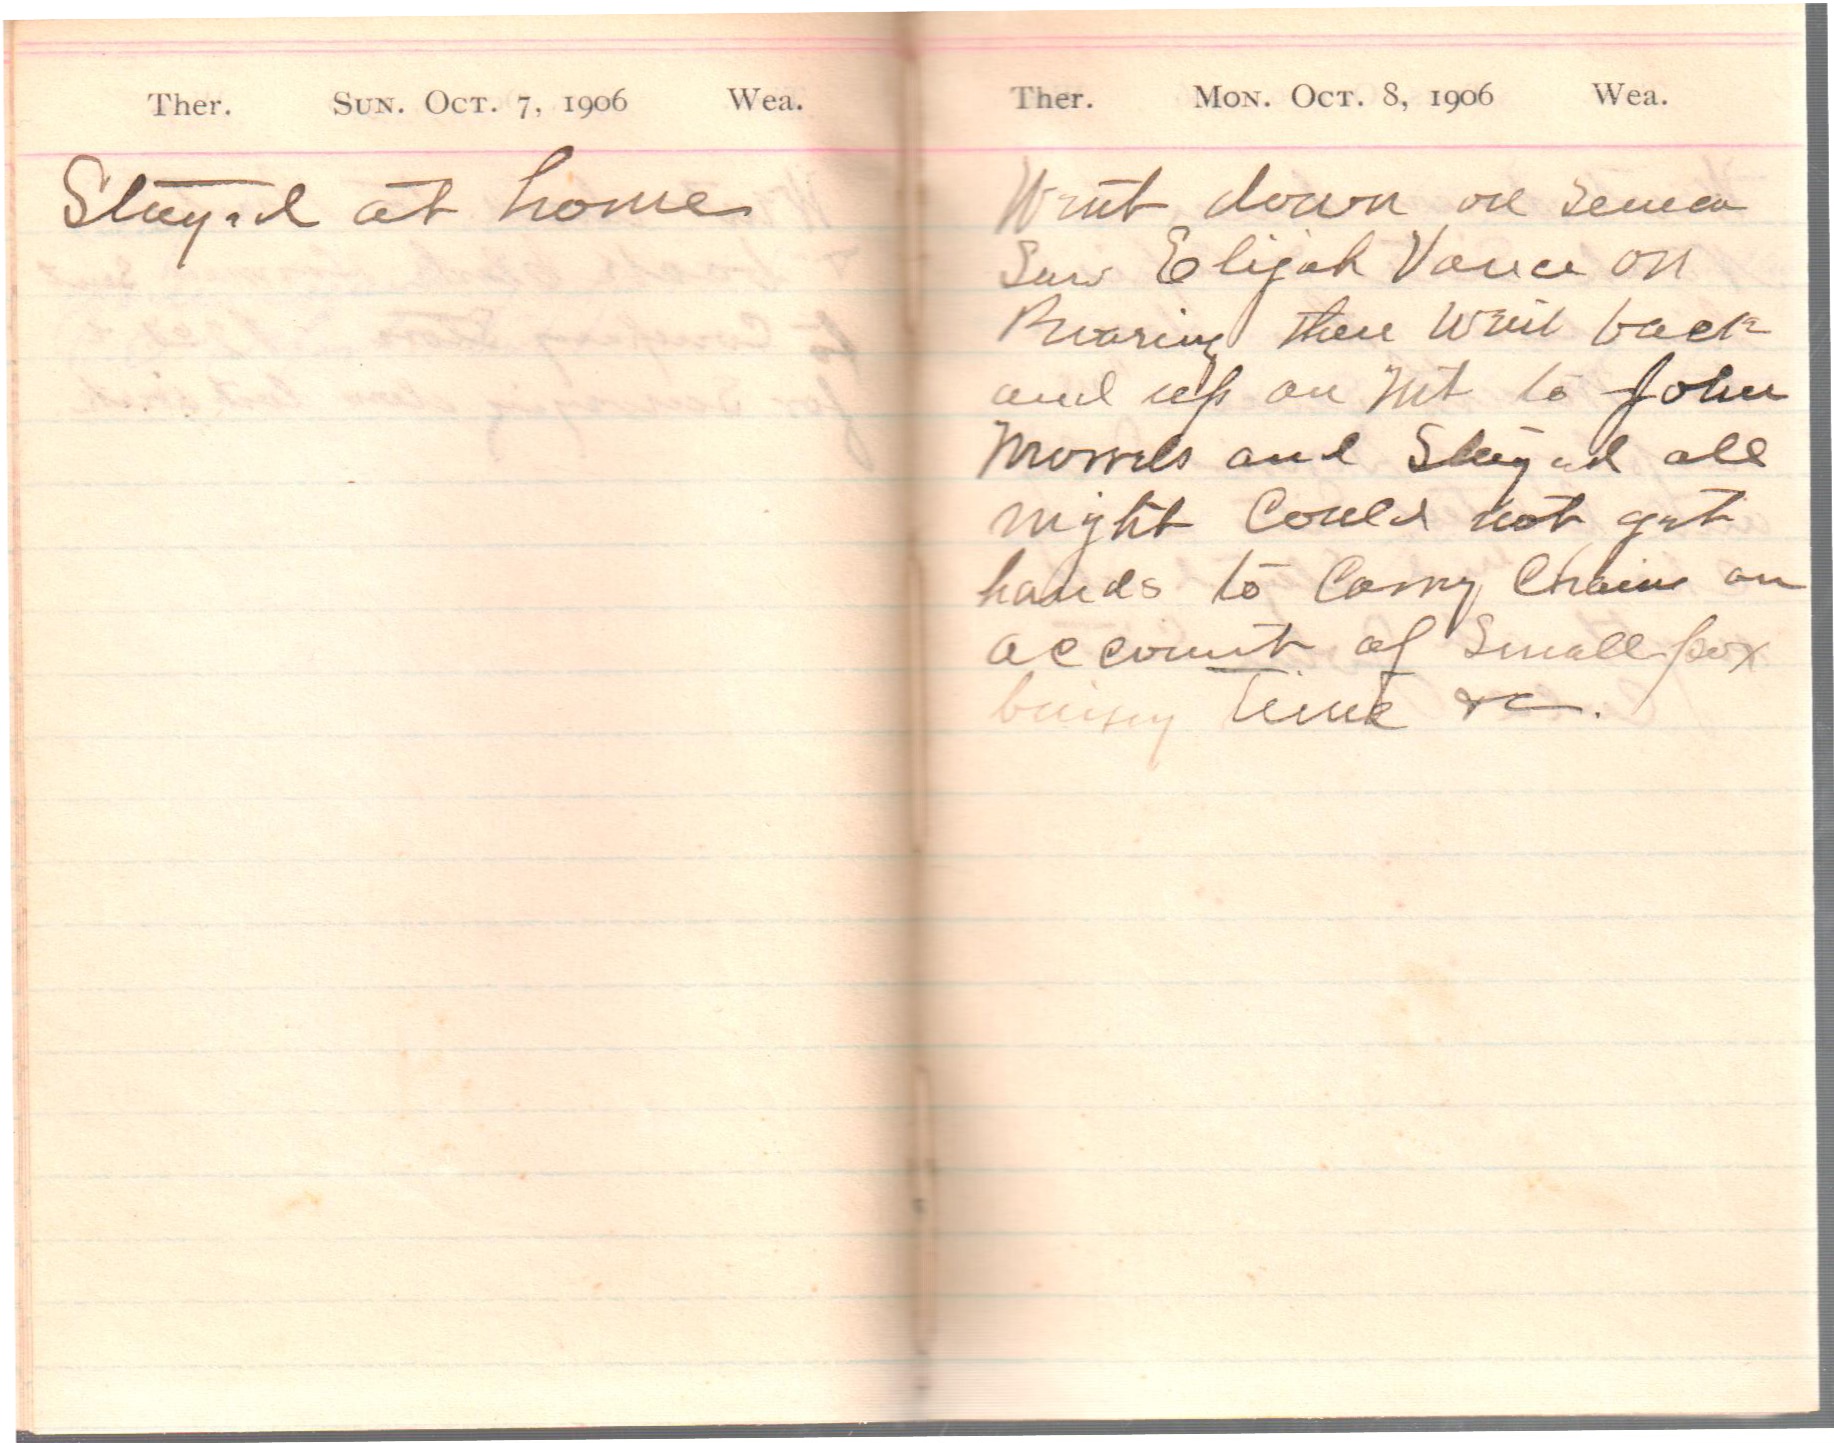 Ther. Sun. Oct. 7, 1906 Wea.
Stayed at home
Ther. Mon. Oct. 8, 1906 Wea.
Went down on Seneca
Saw Elijah Vance on
Roaring then went back
and up on Mt to John
Morrels and Stayed all
night Could not get
hands to Carry Chain on
account of Small pox
buisy time &c.